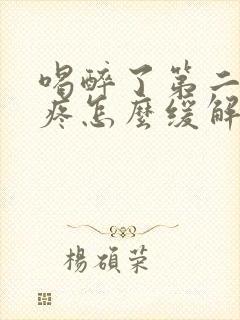 喝醉了第二
疼怎麼緩解
楊碩榮